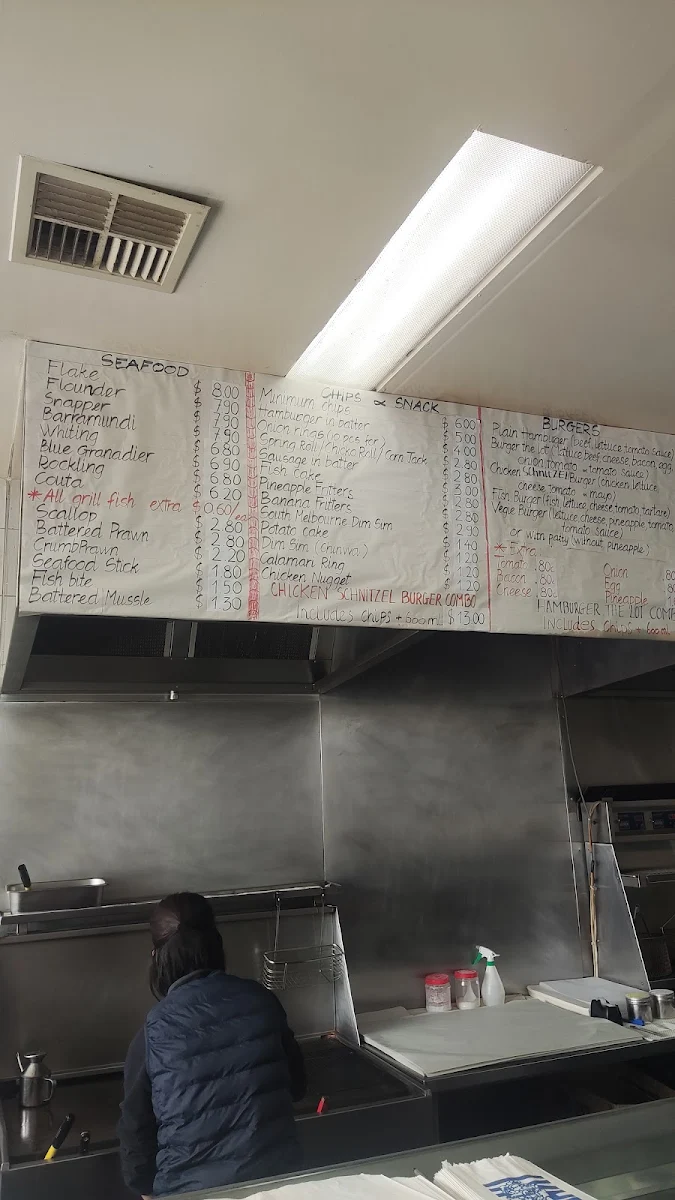 SEAFOOD
Flake $ 8.00
Flounder $ 7.90
Snapper $ 7.90
Barramundi $ 7.90
Whiting $ 6.80
Blue Granadier $ 6.90
Rockling $ 6.80
Couta $ 6.20
*All grill fish extra $0.60/ea
Scallop $ 2.80
Battered Prawn $ 2.80
CrumbPrawn $ 2.20
Seafood Stick $ 1.80
Fish bite $ 1.50
Battered Mussle $ 1.30
CHIPS & SNACK
Minimum chips $ 6.00
Hamburger in batter $ 5.00
Onion rings (10 pcs for) $ 4.00
Spring Roll/Chicko Roll/Corn Jack $ 2.80
Sausage in batter $ 2.80
Fish Cake $ 3.00
Pineapple Fritters $ 2.80
Banana Fritters $ 2.80
South Melbourne Dim Sim $ 2.90
Potato cake $ 1.40
Dim Sim $ 1.20
Calamari Ring $ 1.20
Chicken Nugget $ 1.20
CHICKEN SCHNITZEL BURGER COMBO
Includes Chips + 600mL $ 13.00
BURGERS
Plain Hamburger (beef, lettuce, tomato sauce)
Burger the lot (lettuce beef cheese bacon egg,
onion tomato + tomato sauce)
Chicken SCHNITZEL Burger (chicken, lettuce
cheese tomato + mayo)
Fish Burger (fish, lettuce, cheese, tomato, tartare)
Vegie Burger (lettuce, cheese, pineapple, tomato
tomato sauce)
or with patty (without pineapple)
* Extra
Tomato .80c Onion .80
Bacon .80c Egg .80
Cheese .80c Pineapple .80
HAMBURGER THE LOT
INCLUDES Chips + 600mL